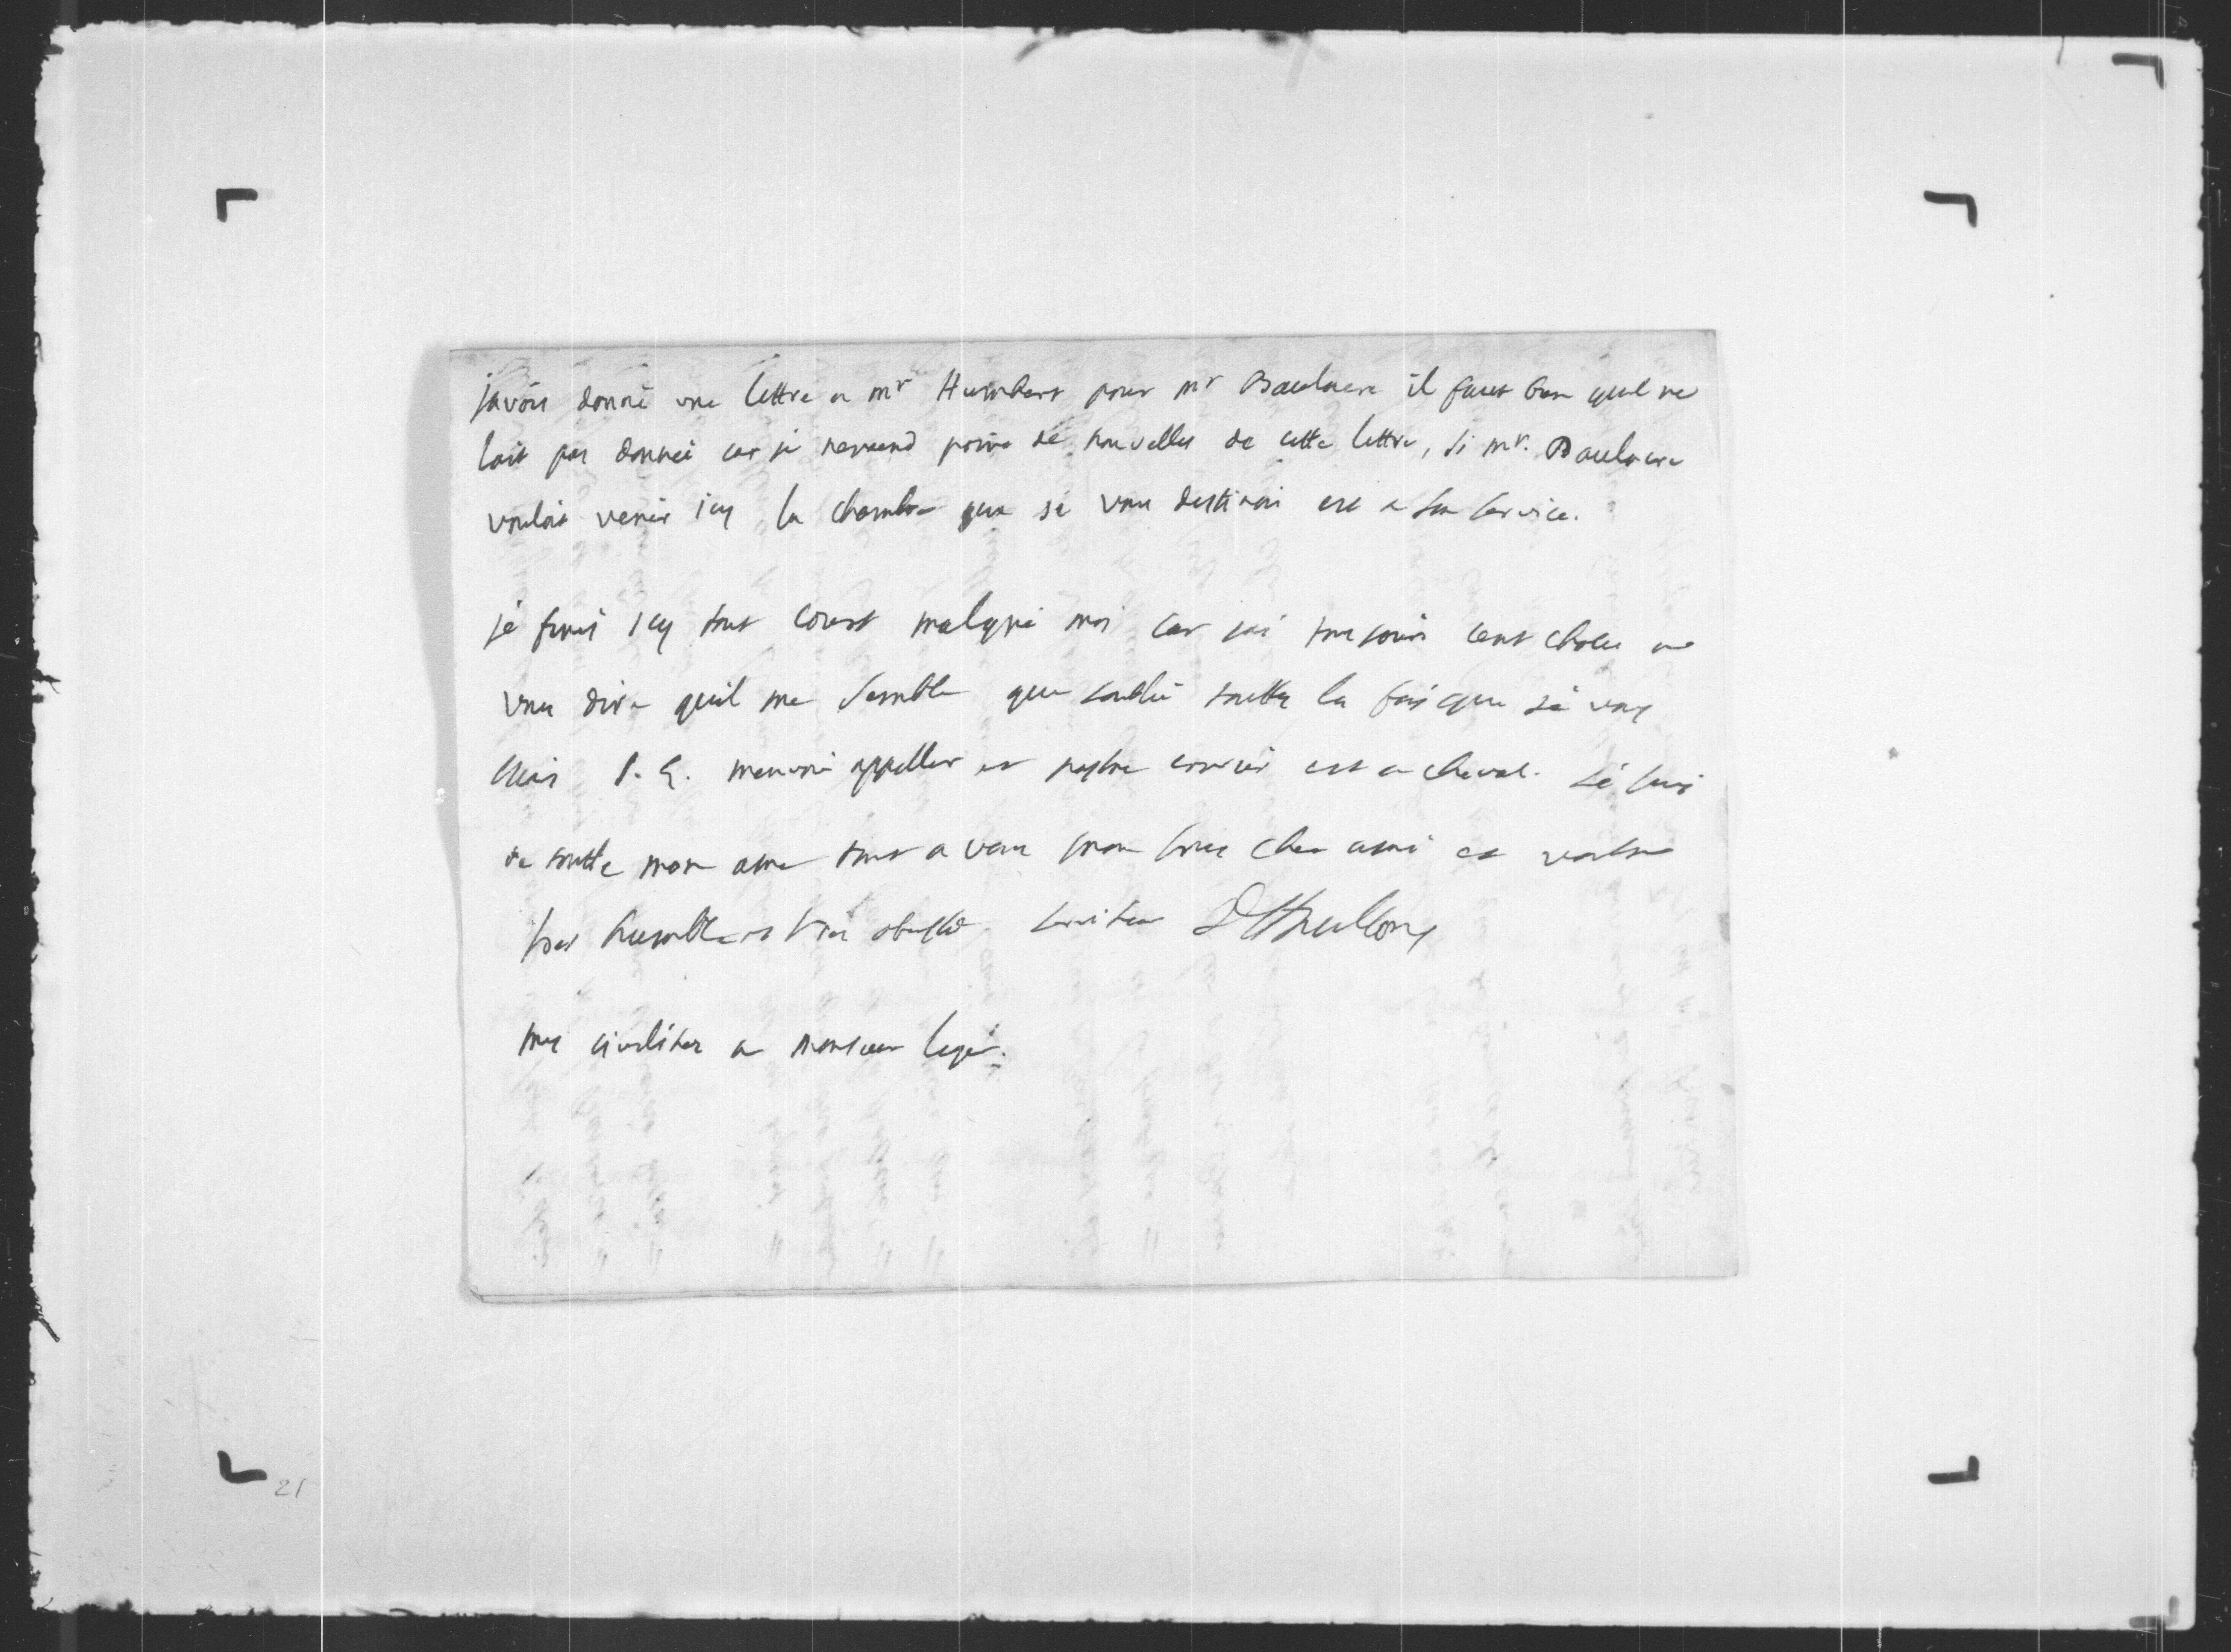 javois donné une lettre a mr Humbert pour mr Baulacre il faut bien quil ne
lait pas donnée car je nentend point de nouvelles de cette lettre, si mr. Baulacre
vouloit venir icy la chambre que je vous destinois est a son service.
je finis icy tout court malgré moi car jai tousjours cent choses a
vous dire quil me semble que joublie toutes les fois que je vous
écris S. E. menvoie appeller et nostre courier est a cheval. je suis
de toutte mon ame tout a vous mon tres cher ami et vostre
tres humble et tres obeissant serviteur
mes civilitez a monsieur leger.
21